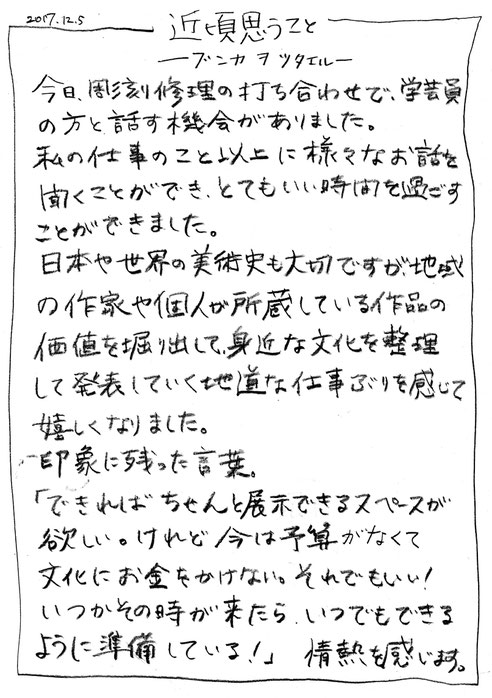 2017.12.5
近頃思うこと
―ブンカヲツタエル―
今日、彫刻修理の打ち合わせで、学芸員
の方と話す機会がありました。
私の仕事のこと以上に様々なお話を
聞くことができ、とてもいい時間を過ごす
ことができました。
日本や世界の美術史も大切ですが、地域
の作家や個人が所蔵している作品の
価値を掘り出して、身近な文化を整理
して発表していく地道な仕事ぶりを感じて
嬉しくなりました。
印象に残った言葉。
「できればちゃんと展示できるスペースが
欲しい。けれど今は予算がなくて
文化にお金をかけない。それでもいい!
いつかその時が来たら、いつでもできる
ように準備している!」 情熱を感じます。